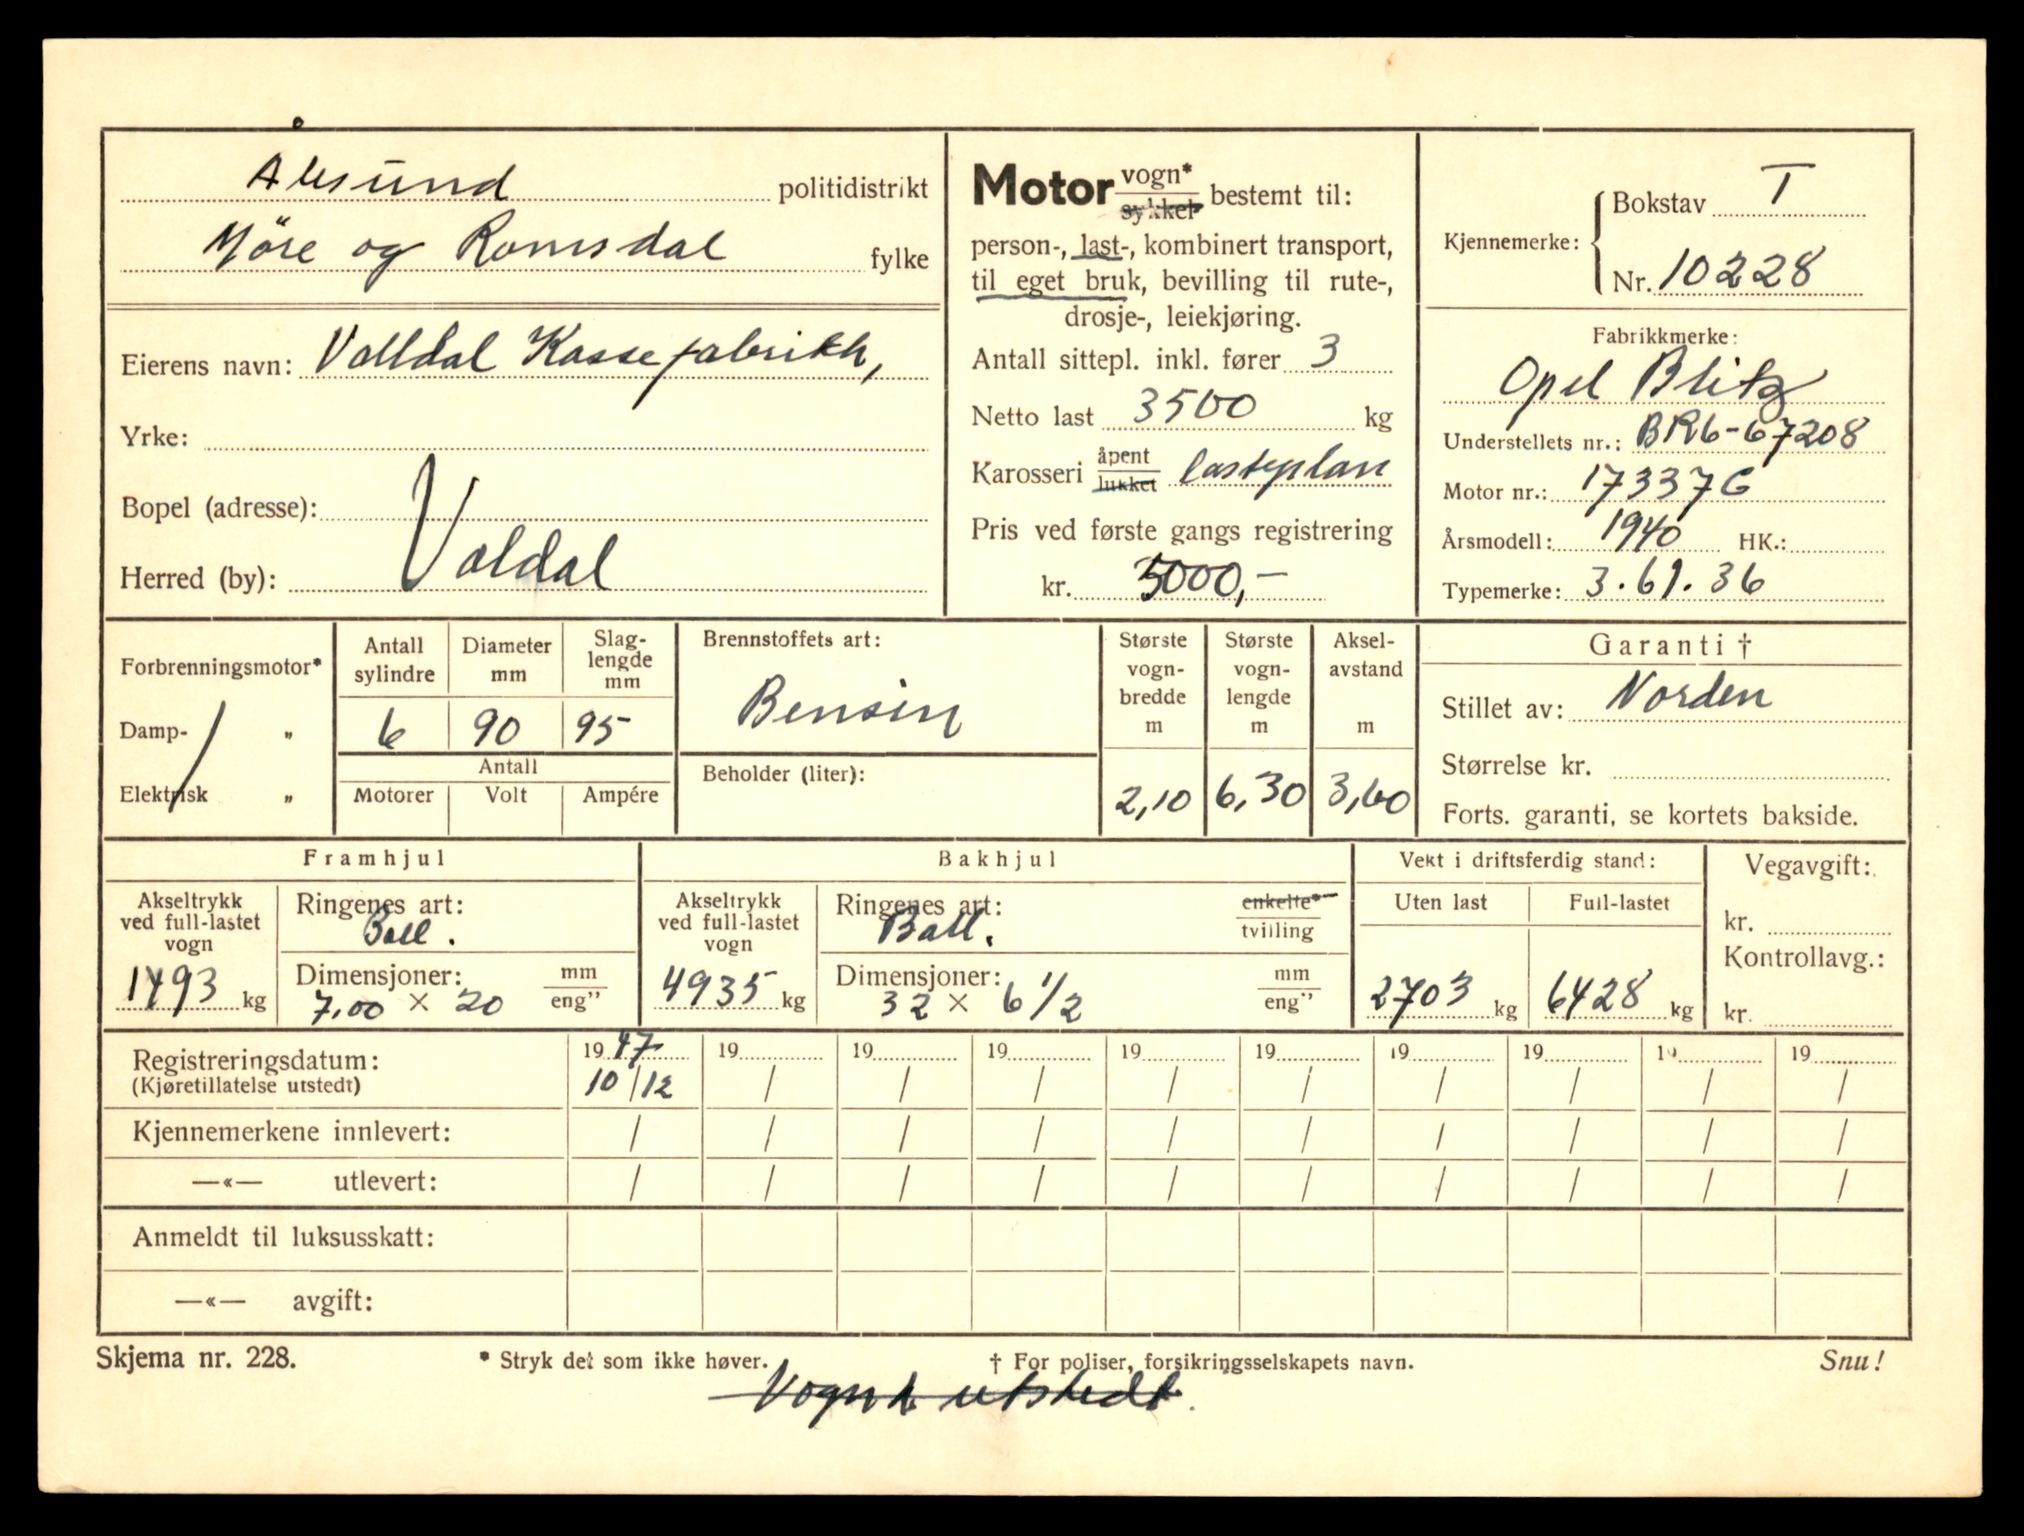 Ålesund politidistrikt
Möre og Romsdal fylke
Eierens navn: Valldal Kassefabrikk,
Yrke:
Bopel (adresse):
Herred (by): Valdal
Motor vogn* / sykkel bestemt til:
person-, last-, kombinert transport,
til eget bruk, bevilling til rute-,
drosje-, leiekjøring.
Antall sittepl. inkl. fører 3
Netto last 3500 kg
Karosseri åpent / lukket lasteplan
Pris ved første gangs registrering
kr. 5000,-
Kjennemerke: Bokstav T
Nr. 10228
Fabrikkmerke:
Opel Blitz
Understellets nr.: BR6-67208
Motor nr.: 17337G
Årsmodell: 1940 HK.:
Typemerke: 3.61.36
Forbrenningsmotor*
Damp- „
Elektrisk „
Antall sylindre Diameter mm Slag-lengde mm
6 90 95
Antall
Motorer Volt Ampére
Brennstoffets art:
Bensin
Beholder (liter):
Største vogn-bredde m Største vogn-lengde m Aksel-avstand m
2,10 6,30 3,60
Garanti †
Stillet av: Norden
Størrelse kr.
Forts. garanti, se kortets bakside.
Framhjul
Akseltrykk ved full-lastet vogn
1493 kg
Ringenes art:
Ball.
Dimensjoner: mm / eng"
7.00 × 20
Bakhjul
Akseltrykk ved full-lastet vogn
4935 kg
Ringenes art: enkelte* / tvilling
Ball.
Dimensjoner: mm / eng"
32 × 6 1/2
Vekt i driftsferdig stand:
Uten last Full-lastet
2703 kg 6428 kg
Vegavgift:
kr.
Kontrollavg.:
kr.
Registreringsdatum: 1947 19 19 19 19 19 19 19 19 19
(Kjøretillatelse utstedt) 10/12 / / / / / / / / /
Kjennemerkene innlevert: / / / / / / / / / /
—«— utlevert: / / / / / / / / / /
Anmeldt til luksusskatt:
—«— avgift:
Skjema nr. 228. * Stryk det som ikke høver. † For poliser, forsikringsselskapets navn. Snu!
Vognk utstedt.